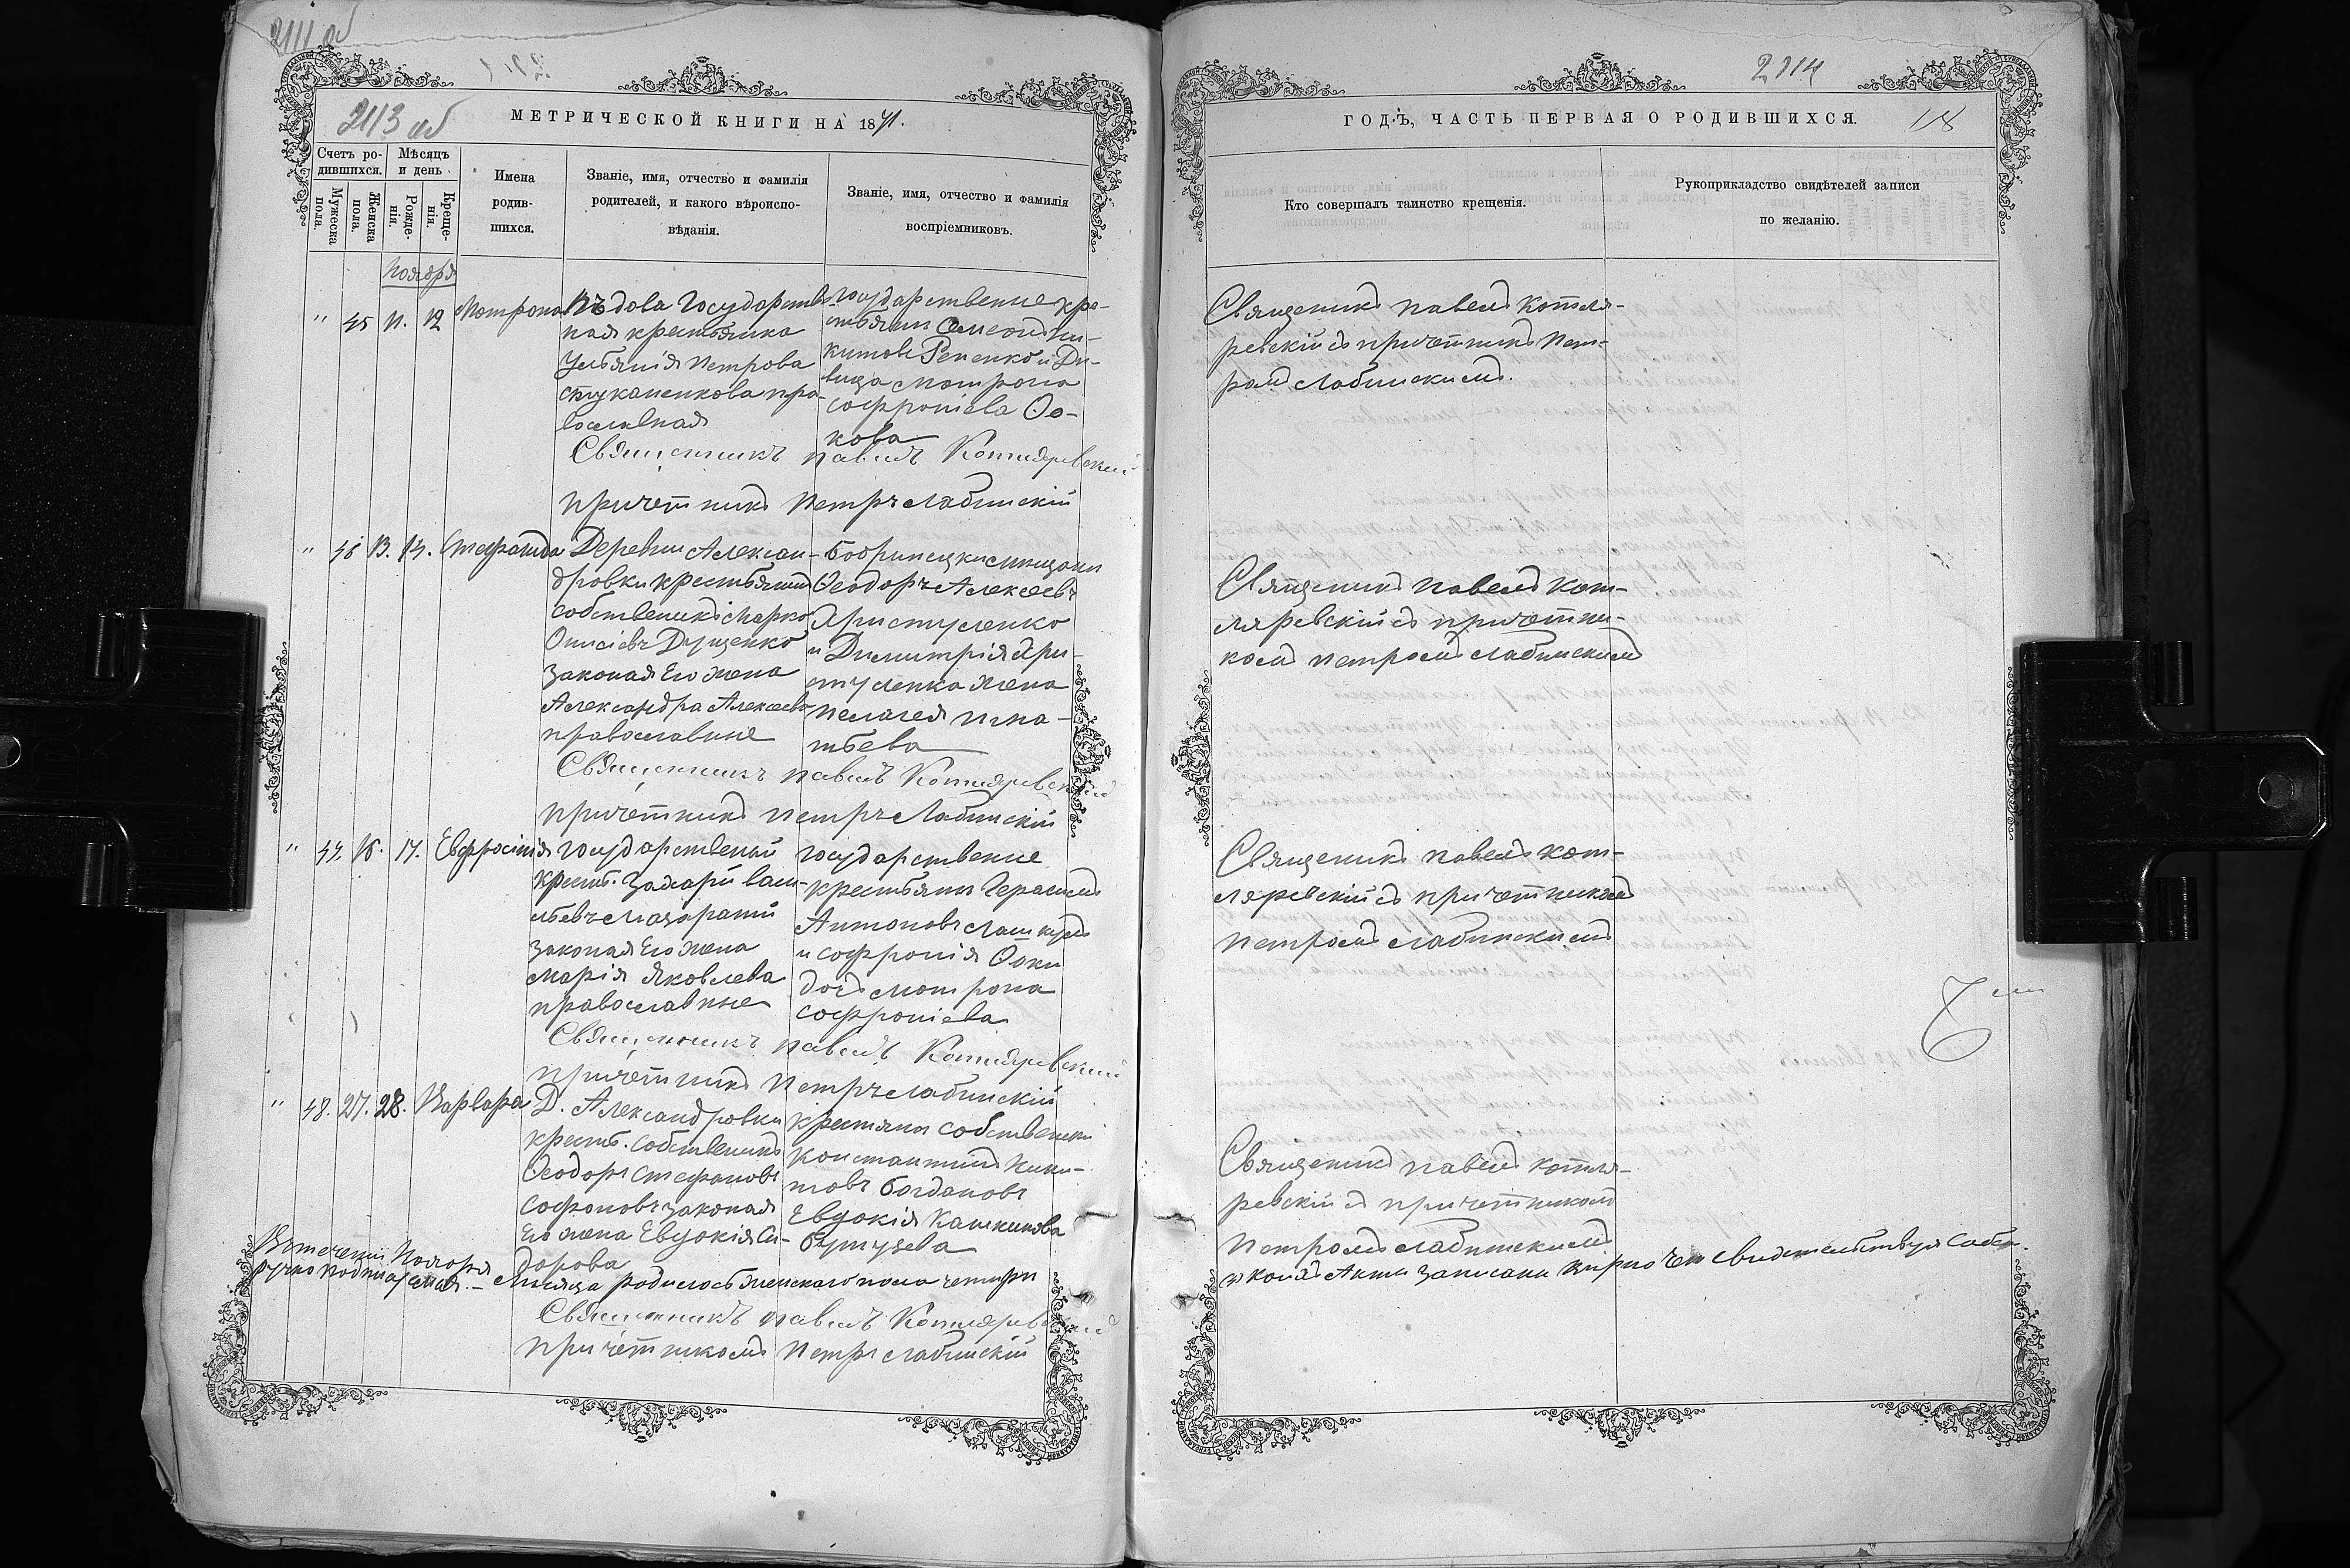 2111 об
2113 об
МЕТРИЧЕСКОЙ КНИГИ НА 1871.
Счетъ ро-
дившихся.
Мѣсяцъ
и день
Мужеска
пола.
Женска
пола.
Рожде-
нія.
Креще-
нія.
Имена
родив-
шихся.
Званіе, имя, отчество и фамилія
родителей, и какого вѣроиспо-
вѣданія.
Званіе, имя, отчество и фамилія
воспріемниковъ.
Ноября
" 45 11. 12 Матрона
Въдова Государствен
ная крестьянка
Ульянія Петрова
Стукаленкова пра-
вославная
Государственые кре-
стьяни Симеонъ Ни-
китовъ Репенко и Дѣ-
вица Матрона
Софроніева Оо-
кова
Священникъ Павелъ Котляревскій
Причетникъ Петръ Лабинскій
" 46 13. 14. Стефанида
Деревни Алексан-
дровки крестьянинъ
собственикъ Марко
Онисіевъ Дущенко
Законая Его жена
Александра Алексеева
православные
Бобринецкие мищани
Феодоръ Алексеевъ
Христуленко
и Димитрія Хри-
стуленка жена
Пелагея Игна-
тьева
Священникъ Павелъ Котляревскій
Причетникъ Петръ Лабинскій
" 47. 16. 17. Евфросинія
Государственый
крест. Захарій Васи-
льевъ Мазаратій
Законая Его жена
Марія Яковлева
православные
Государственые
крестьяни Герасимъ
Антоновъ
и Софронія Ооки
дочь Матрона
Софроніева
Священникъ Павелъ Котляревскій
Причетникъ Петръ Лабинскій
" 48. 27. 28. Варвара
Д. Александровки
крест. собственикъ
Феодоръ Стефановъ
Софроновъ законая
Его жена Евдокія Си-
дорова
крестяни собственики
Константинъ Ники-
товъ Богдановъ
Евдокія Кашкинова
Священникъ Павелъ Котляревскій
Причетникомъ Петръ Лабинскій
2114
ГОДЪ, ЧАСТЬ ПЕРВАЯ О РОДИВШИХСЯ.
18
Кто совершалъ таинство крещенія.
Рукоприкладство свидѣтелей записи
по желанію.
Священикъ Павелъ Котля-
ревскій съ причетникъ Пет-
ромъ Лабинскимъ.
Священикъ Павелъ Кот-
ляревскій съ причетни-
комъ Петромъ Лабинскимъ
Священикъ Павелъ Кот-
ляревскій съ причетникомъ
Петромъ Лабинскимъ
Священикъ Павелъ Котля-
ревскій съ причетникомъ
Петромъ Лабинскимъ
Въ течении Ноября Мисяца родилось женскаго пола четыри и коихъ Акты записаны вирно чем свидетельствуя собст-
ручно подписуемся. -